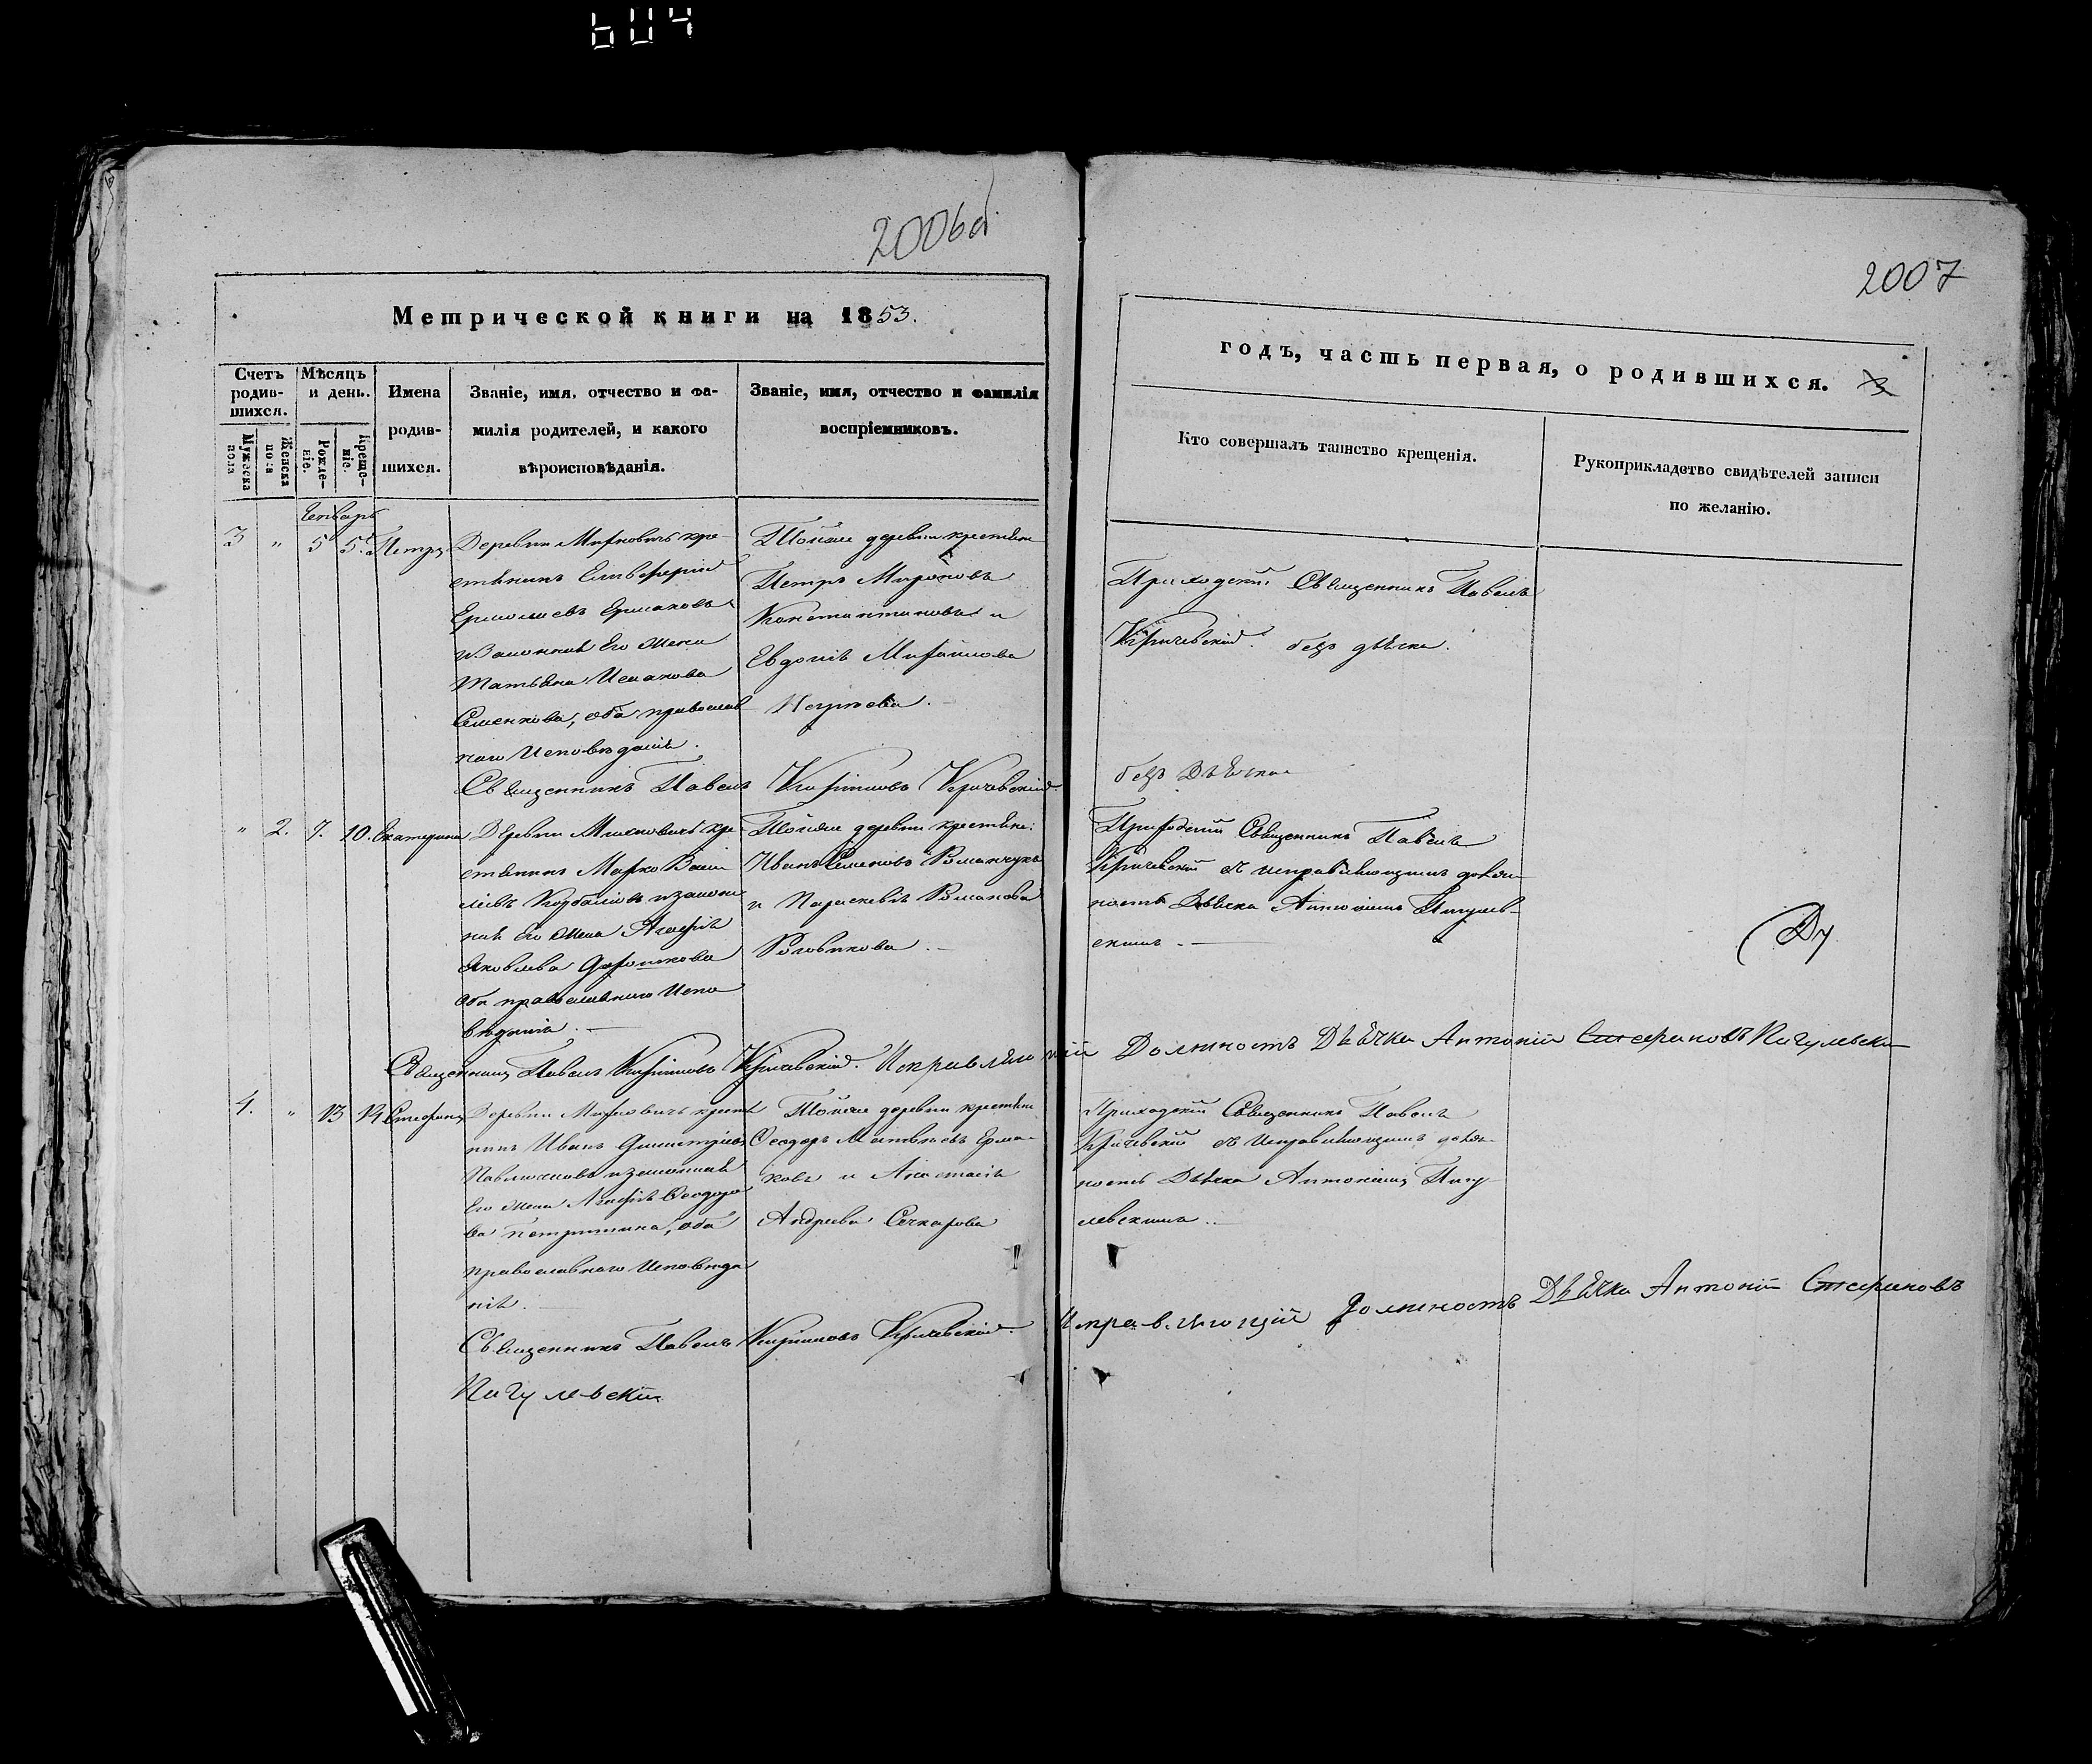 604
2006об
2007
Метрической книги на 1853.
годъ, часть первая, о родившихся.
Счетъ родив-
шихся.
Мужеска пола
Женска пола
Мѣсяцъ и день.
Рожде-
ніе.
Креще-
ніе.
Имена
родив-
шихся.
Званіе, имя, отчество и фа-
милія родителей, и какого
вѣроисповѣданія.
Званіе, имя, отчество и фамилія
воспріемниковъ.
Кто совершалъ таинство крещенія.
Рукоприкладство свидѣтелей записи
по желанію.
Генварь
3 " 5 5. Петръ
Деревни кре-
стьянинъ Елевферій
Ермолаевъ Ермаковъ
и Законная Его Жена
Татьяна Исакова
Семенкова, оба православ
наго Исповѣданія.
Тойже деревни крестьяне
Петръ Мироновъ
Константиновъ и
Евдокія Михайлова
Приходскій Священникъ Павелъ
Кричевскій. безъ дьячка.
Священникъ Павелъ Кирилловъ Кричевскій
безъ Дьячка
" 2. 7. 10. Екатерина
Деревни кре-
стьянинъ Марко Васи
льевъ и закон
ная Его Жена Агафія
Яковлева
Оба православнаго Испо
вѣданія.
Тойже деревни крестьяне:
Иванъ Семеновъ Романчукъ
и Параскевія Романова
Головнкова.
Приходскій Священникъ Павелъ
Кричевскій съ исправляющимъ долж-
ность Дьячка Антоніемъ Пигулев-
скимъ.
Священникъ Павелъ Кирилловъ Кричевскій. Исправляющій Должность Дьячка Антоній Стефановъ Пигулевскій
4. " 13 14 Стефанъ
Деревни крестья
нинъ Иванъ Димитріевъ
Павлюченковъ и законная
Его Жена Агафія Ѳеодоро
ва оба
православнаго Исповѣда
нія.
Тойже деревни крестьяне
Ѳеодоръ Матвѣевъ Ерма-
ковъ и Анастасія
Андреева
Приходскій Священникъ Павелъ
Кричевскій съ Исправляющимъ долж-
ность Дьячка Антоніемъ Пигу
левскимъ.
Священникъ Павелъ Кирилловъ Кричевскій. Исправляющій Должность Дьячка Антоній Стефановъ
Пигулевскій